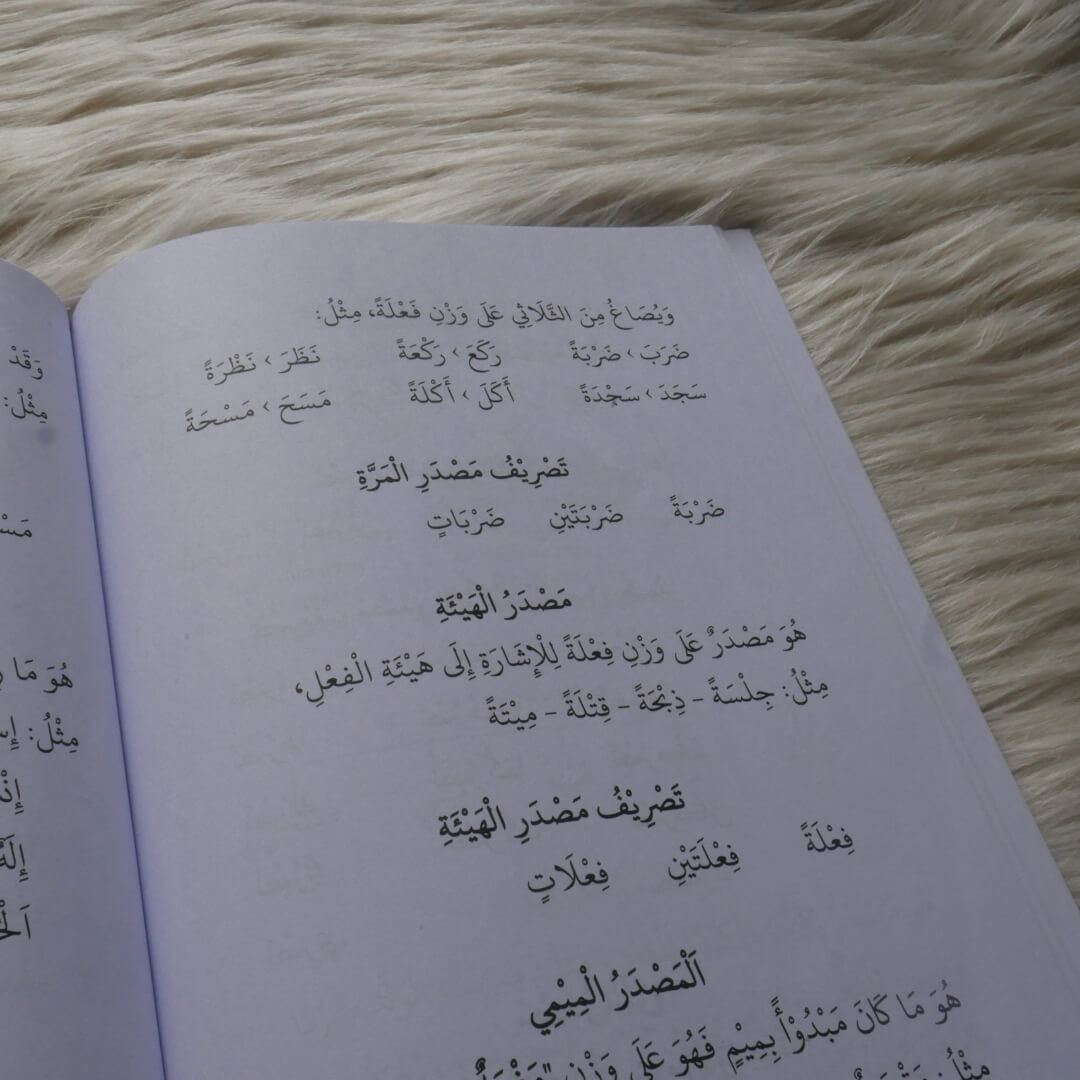 وَيُصَاغُ مِنَ الثَّلَاثِي عَلَى وَزْنِ فَعْلَةً، مِثْلُ:
ضَرَبَ › ضَرْبَةً رَكَعَ › رَكْعَةً نَظَرَ › نَظْرَةً
سَجَدَ › سَجْدَةً أَكَلَ › أَكْلَةً مَسَحَ › مَسْحَةً
تَصْرِيْفُ مَصْدَرِ الْمَرَّةِ
ضَرْبَةً ضَرْبَتَيْنِ ضَرْبَاتٍ
مَصْدَرُ الْهَيْئَةِ
هُوَ مَصْدَرٌ عَلَى وَزْنِ فِعْلَةً لِلْإِشَارَةِ إِلَى هَيْئَةِ الْفِعْلِ،
مِثْلُ: جِلْسَةً - ذِبْحَةً - قِتْلَةً - مِيْتَةً
تَصْرِيْفُ مَصْدَرِ الْهَيْئَةِ
فِعْلَةً فِعْلَتَيْنِ فِعْلَاتٍ
اَلْمَصْدَرُ الْمِيْمِي
هُوَ مَا كَانَ مَبْدُوْأً بِمِيْمٍ فَهُوَ عَلَى وَزْنِ
مِثْلُ:
وَقَدْ
مِثْلُ:
هُوَ مَا
مِثْلُ: